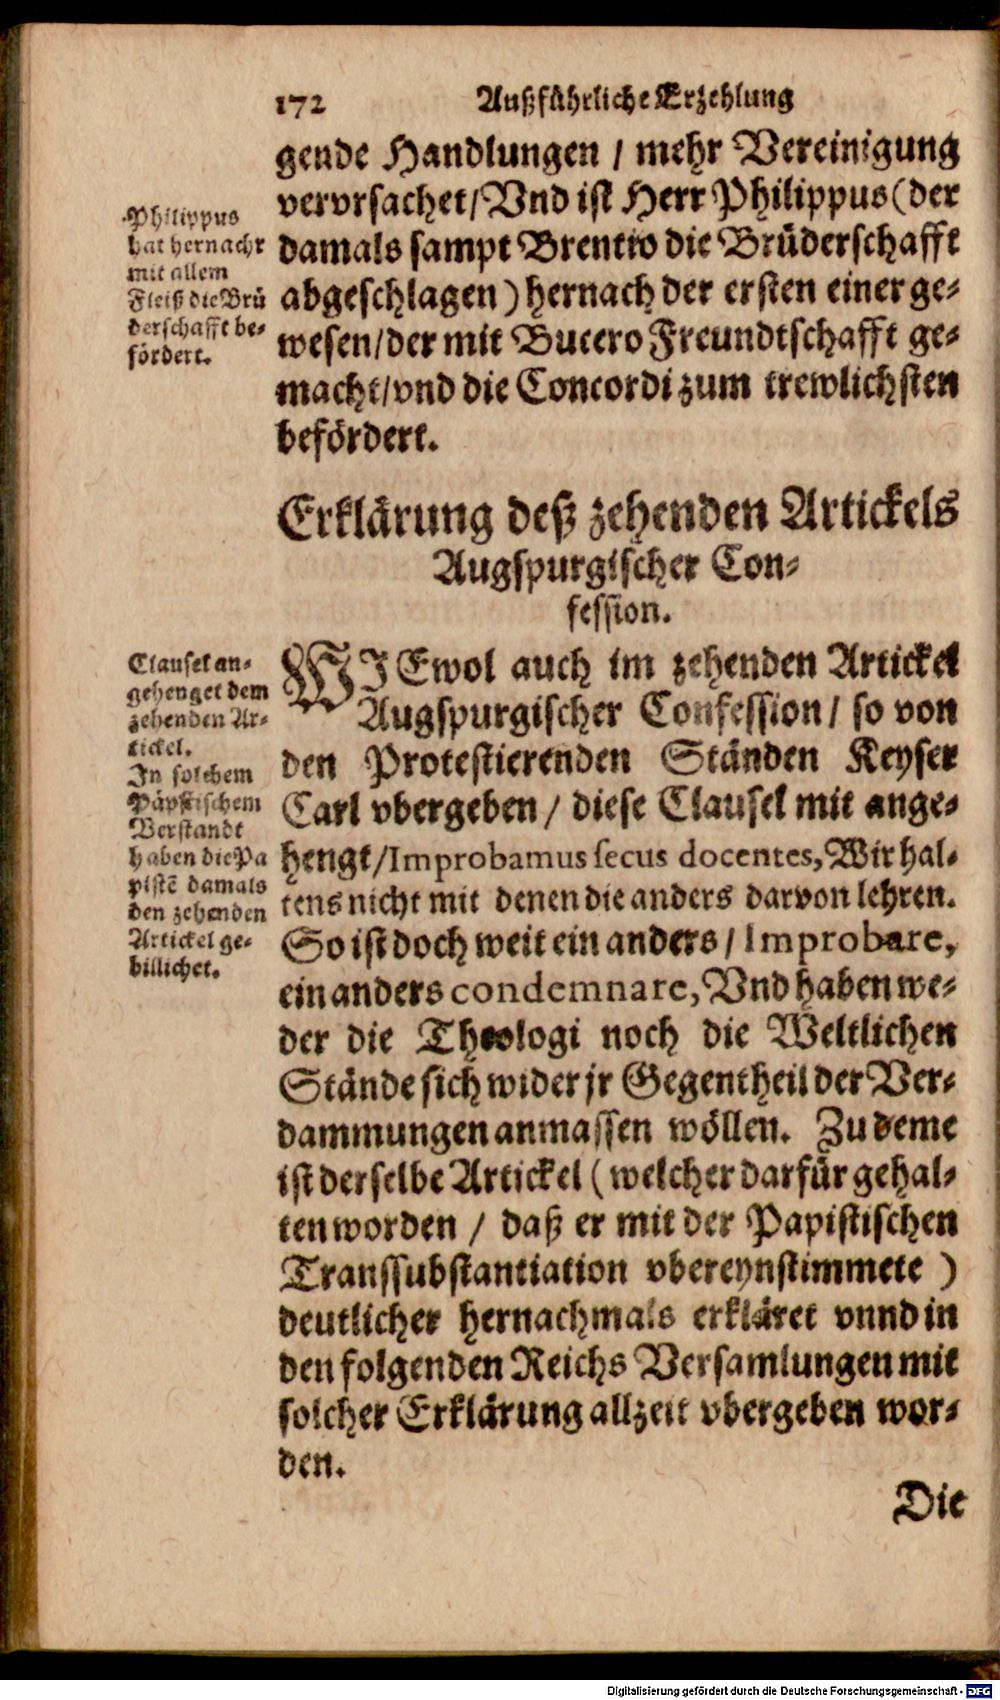 172 Außführliche Erzehlung
gende Handlungen / mehr Vereinigung
vervrsachet/Vnd ist Herr Philippus (der
damals sampt Brentio die Brüderschafft
abgeschlagen) hernach der ersten einer ge-
wesen/der mit Bucero Freundtschafft ge-
macht/vnd die Concordi zum trewlichsten
befördert.
Philippus
hat hernachr
mit allem
Fleiß die Brü
derschafft be-
fördert.
Erklärung deß zehenden Artickels
Augspurgischer Con-
fession.
WIEwol auch im zehenden Artickel
Augspurgischer Confession / so von
den Protestierenden Ständen Keyser
Carl vbergeben / diese Clausel mit ange-
hengt/Improbamus secus docentes, Wir hal-
tens nicht mit denen die anders darvon lehren.
So ist doch weit ein anders / Improbare,
ein anders condemnare, Vnd haben we-
der die Theologi noch die Weltlichen
Stände sich wider jr Gegentheil der Ver-
dammungen anmassen wöllen. Zu deme
ist derselbe Artickel (welcher darfür gehal-
ten worden / daß er mit der Papistischen
Transsubstantiation vbereynstimmete )
deutlicher hernachmals erkläret vnnd in
den folgenden Reichs Versamlungen mit
solcher Erklärung allzeit vbergeben wor-
den.
Clausel an-
gehenget dem
zehenden Ar-
tickel.
In solchem
Päpstischem
Verstandt
haben die Pa
pistē damals
den zehenden
Artickel ge-
billichet.
Die
Digitalisierung gefördert durch die Deutsche Forschungsgemeinschaft - DFG